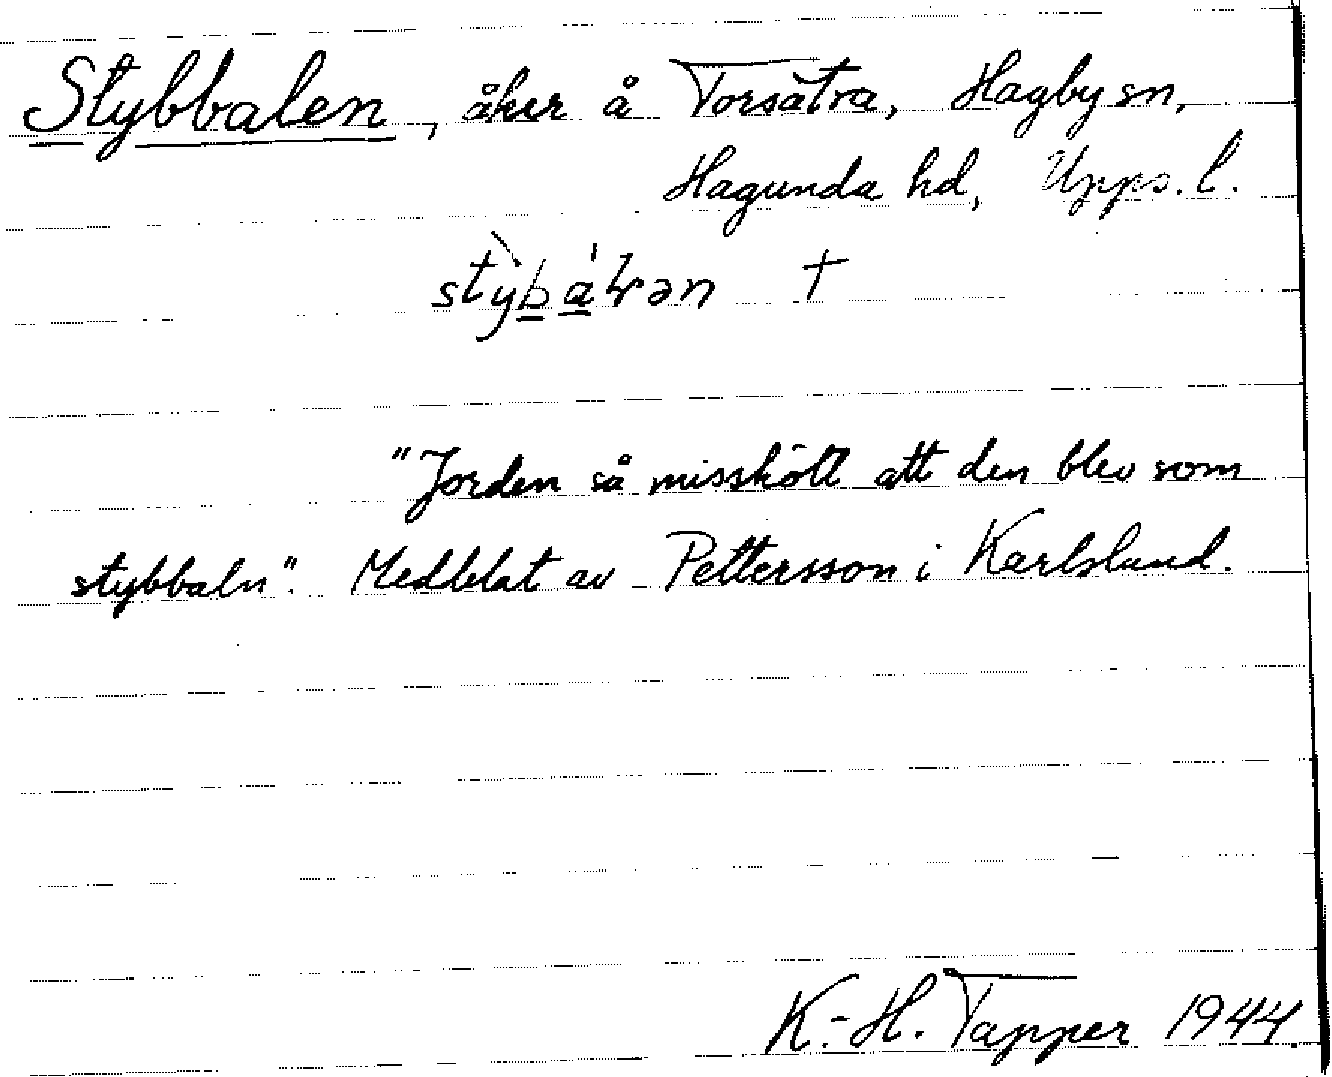 Stybbalen, åker å Torsätra, Hagby sn,
Hagunda hd, Upps. l.
†
"Jorden så misskött att den blev som
stybbaln". Meddelat av Pettersson i Karlslund.
K.-H. Tapper 1944.